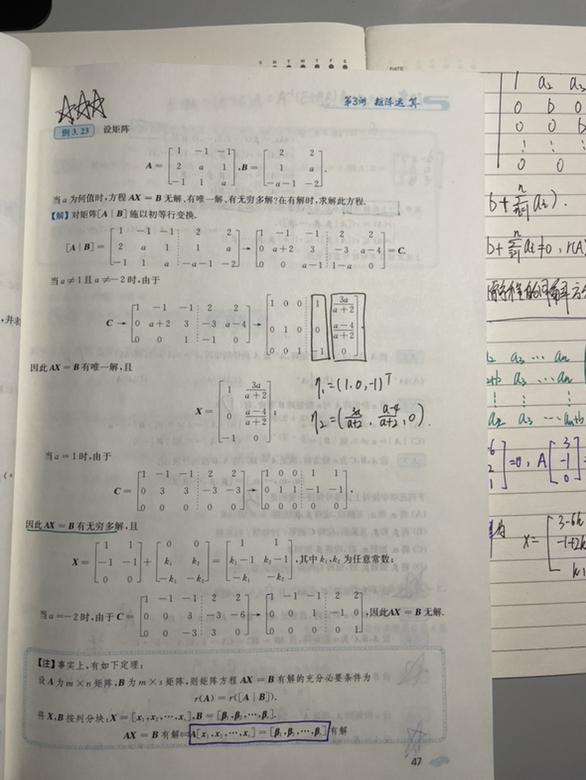 第3讲 矩阵运算
例 3.23 设矩阵
A = [1 -1 -1; 2 a 1; -1 1 a], B = [2 2; 1 a; -a-1 -2].
当 a 为何值时,方程 AX = B 无解,有唯一解,有无穷多解?在有解时,求解此方程.
【解】对矩阵[A | B]施以初等行变换.
[A | B] = [1 -1 -1 2 2; 2 a 1 1 a; -1 1 a -a-1 -2] → [1 -1 -1 2 2; 0 a+2 3 -3 a-4; 0 0 a-1 1-a 0] = C.
当 a ≠ 1 且 a ≠ -2 时,由于
C → [1 -1 -1 2 2; 0 a+2 3 -3 a-4; 0 0 1 -1 0] → [1 0 0 1 3a/(a+2); 0 1 0 0 (a-4)/(a+2); 0 0 1 -1 0]
因此 AX = B 有唯一解,且
X = [1 3a/(a+2); 0 (a-4)/(a+2); -1 0];
η₁=(1,0,-1)ᵀ
η₂=(3a/(a+2), (a-4)/(a+2), 0).
当 a = 1 时,由于
C = [1 -1 -1 2 2; 0 3 3 -3 -3; 0 0 0 0 0] → [1 0 0 1 1; 0 1 1 -1 -1; 0 0 0 0 0],
因此 AX = B 有无穷多解,且
X = [1 1; -1 -1; 0 0] + [0 0; k₁ k₂; -k₁ -k₂] = [1 1; k₁-1 k₂-1; -k₁ -k₂],其中 k₁,k₂ 为任意常数;
当 a = -2 时,由于 C = [1 -1 -1 2 2; 0 0 3 -3 -6; 0 0 -3 3 0] → [1 -1 -1 2 2; 0 0 1 -1 0; 0 0 0 0 1],因此 AX = B 无解.
【注】事实上,有如下定理:
设 A 为 m × n 矩阵,B 为 m × s 矩阵,则矩阵方程 AX = B 有解的充分必要条件为
r(A) = r([A | B]).
将 X,B 按列分块,X = [x₁,x₂,⋯,xₛ],B = [β₁,β₂,⋯,βₛ].
AX = B 有解⇔A[x₁,x₂,⋯,xₛ] = [β₁,β₂,⋯,βₛ] 有解
47
DATE
1 a₂ a₃
0 b 0
0 0 b
0 0